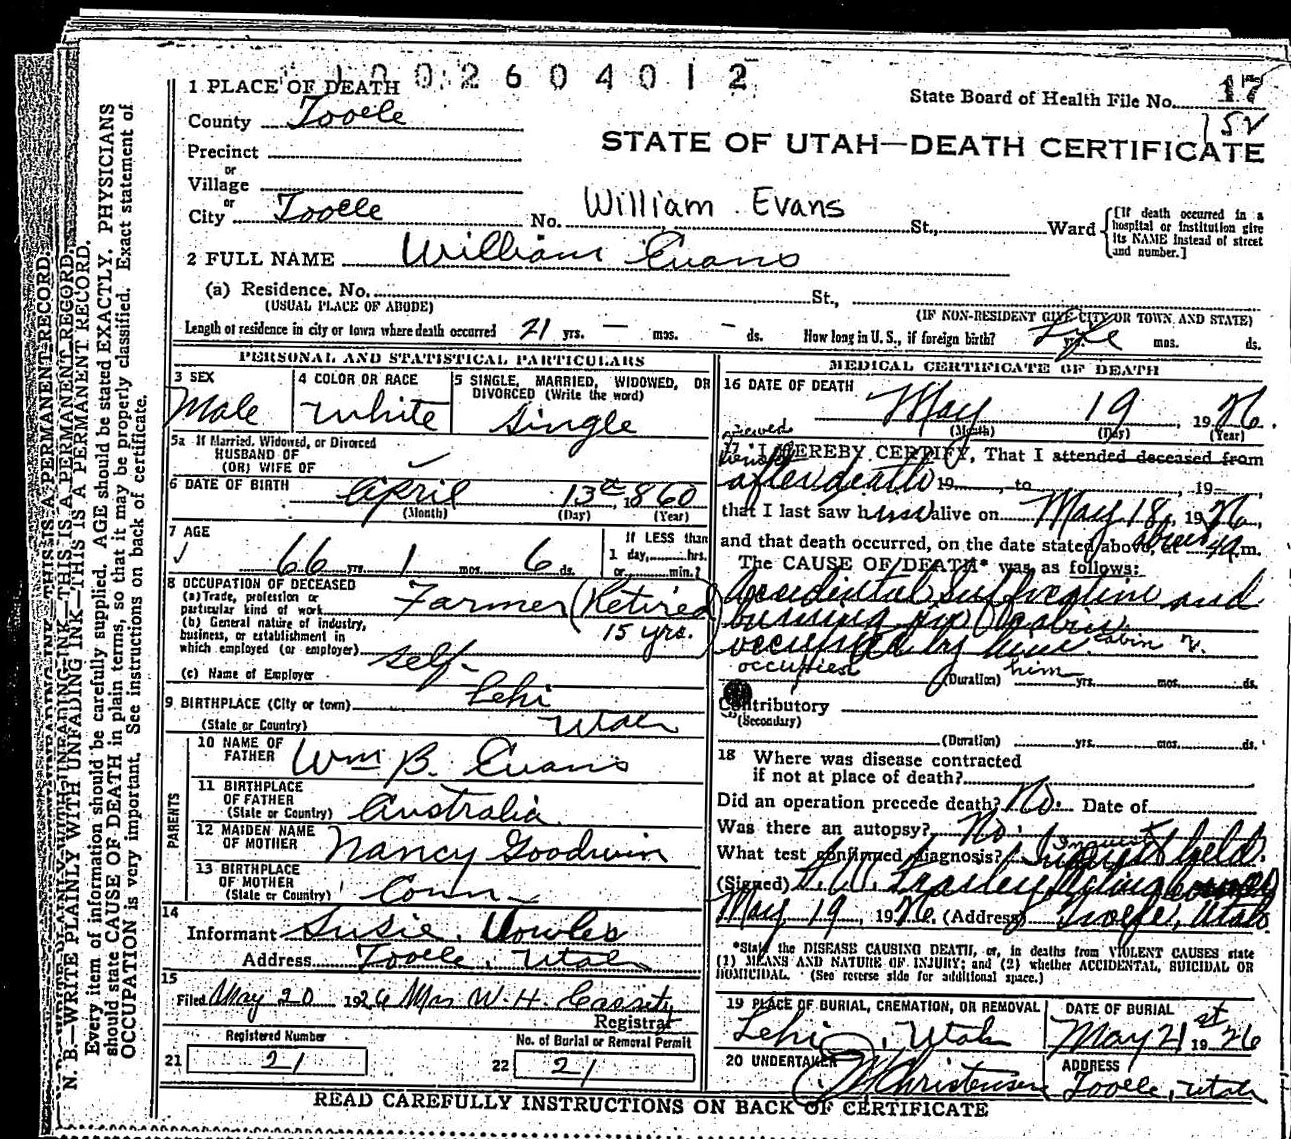 1002604012
1 PLACE OF DEATH
State Board of Health File No. 17
152
County Tooele
STATE OF UTAH—DEATH CERTIFICATE
Precinct
or
Village
or
City Tooele No. William Evans St., Ward
[If death occurred in a
hospital or institution give
its NAME instead of street
and number.]
2 FULL NAME William Evans
(a) Residence. No. St.,
(USUAL PLACE OF ABODE) (IF NON-RESIDENT GIVE CITY OR TOWN AND STATE)
Length of residence in city or town where death occurred 21 yrs. — mos. - ds. How long in U. S., if foreign birth? Life yrs. mos. ds.
PERSONAL AND STATISTICAL PARTICULARS
3 SEX
Male
4 COLOR OR RACE
White
5 SINGLE, MARRIED, WIDOWED, OR
DIVORCED (Write the word)
Single
5a If Married, Widowed, or Divorced
HUSBAND OF
(OR) WIFE OF
6 DATE OF BIRTH April 13th 1860
(Month) (Day) (Year)
7 AGE
66 yrs. 1 mos. 6 ds.
If LESS than
1 day,......hrs.
or......min.?
8 OCCUPATION OF DECEASED
(a) Trade, profession or
particular kind of work Farmer (Retired
15 yrs.)
(b) General nature of industry,
business, or establishment in
which employed (or employer) self-
(c) Name of Employer
9 BIRTHPLACE (City or town) Lehi
(State or Country) Utah
PARENTS
10 NAME OF
FATHER Wm B. Evans
11 BIRTHPLACE
OF FATHER
(State or Country) Australia
12 MAIDEN NAME
OF MOTHER Nancy Goodwin
13 BIRTHPLACE
OF MOTHER
(State or Country) Conn
14
Informant Susie Vowles
Address Tooele, Utah
15
Filed May 20 1926 Mrs W. H. Cassity
Registrar
Registered Number
21 21
No. of Burial or Removal Permit
22 21
MEDICAL CERTIFICATE OF DEATH
16 DATE OF DEATH
May 19, 1926.
(Month) (Day) (Year)
viewed
17 I HEREBY CERTIFY, That I attended deceased from
after death 19, to, 19
that I last saw him alive on May 18, 1926,
and that death occurred, on the date stated above, at m.
The CAUSE OF DEATH* was as follows:
Accidental Suffocation and
burning in cabin
occupied by him. cabin
occupied him
(Duration) yrs. mos. ds.
Contributory
(Secondary)
(Duration) yrs. mos. ds.
18 Where was disease contracted
if not at place of death?
Did an operation precede death? No. Date of
Was there an autopsy? No.
Inquest
What test confirmed diagnosis? Inquest held.
(Signed)
May 19, 1926. (Address) Tooele, Utah
*State the DISEASE CAUSING DEATH, or, in deaths from VIOLENT CAUSES state
(1) MEANS AND NATURE OF INJURY; and (2) whether ACCIDENTAL, SUICIDAL OR
HOMICIDAL. (See reverse side for additional space.)
19 PLACE OF BURIAL, CREMATION, OR REMOVAL
Lehi, Utah
DATE OF BURIAL
May 21st 1926
20 UNDERTAKER
Christensen
ADDRESS
Tooele, Utah
READ CAREFULLY INSTRUCTIONS ON BACK OF CERTIFICATE
N. B.—WRITE PLAINLY WITH UNFADING INK—THIS IS A PERMANENT RECORD.
Every item of information should be carefully supplied. AGE should be stated EXACTLY. PHYSICIANS
should state CAUSE OF DEATH in plain terms, so that it may be properly classified. Exact statement of
OCCUPATION is very important. See instructions on back of certificate.